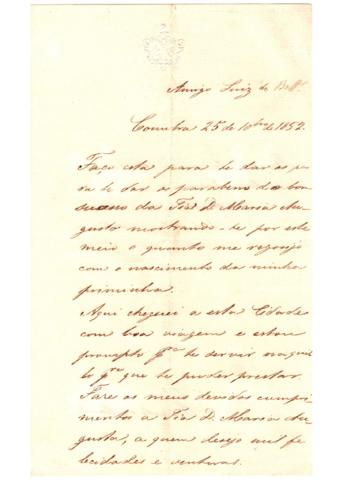 Amigo Luiz de B
Coimbra 25 de 10bro de 1852.
Faço esta para te dar os pa
ra te dar os parabens do bom
sucesso da Tia D. Maria Au
gusta mostrando-te por este
meio o quanto me regozijo
com o nascimento da minha
priminha.
Aqui cheguei a esta Cidade
com boa viagem e estou
prompto pa te servir naquil
lo pa que te puder prestar.
Faze os meus devidos cumpri
mentos a Tia D. Maria Au
gusta, a quem desejo mil fe
licidades e venturas.